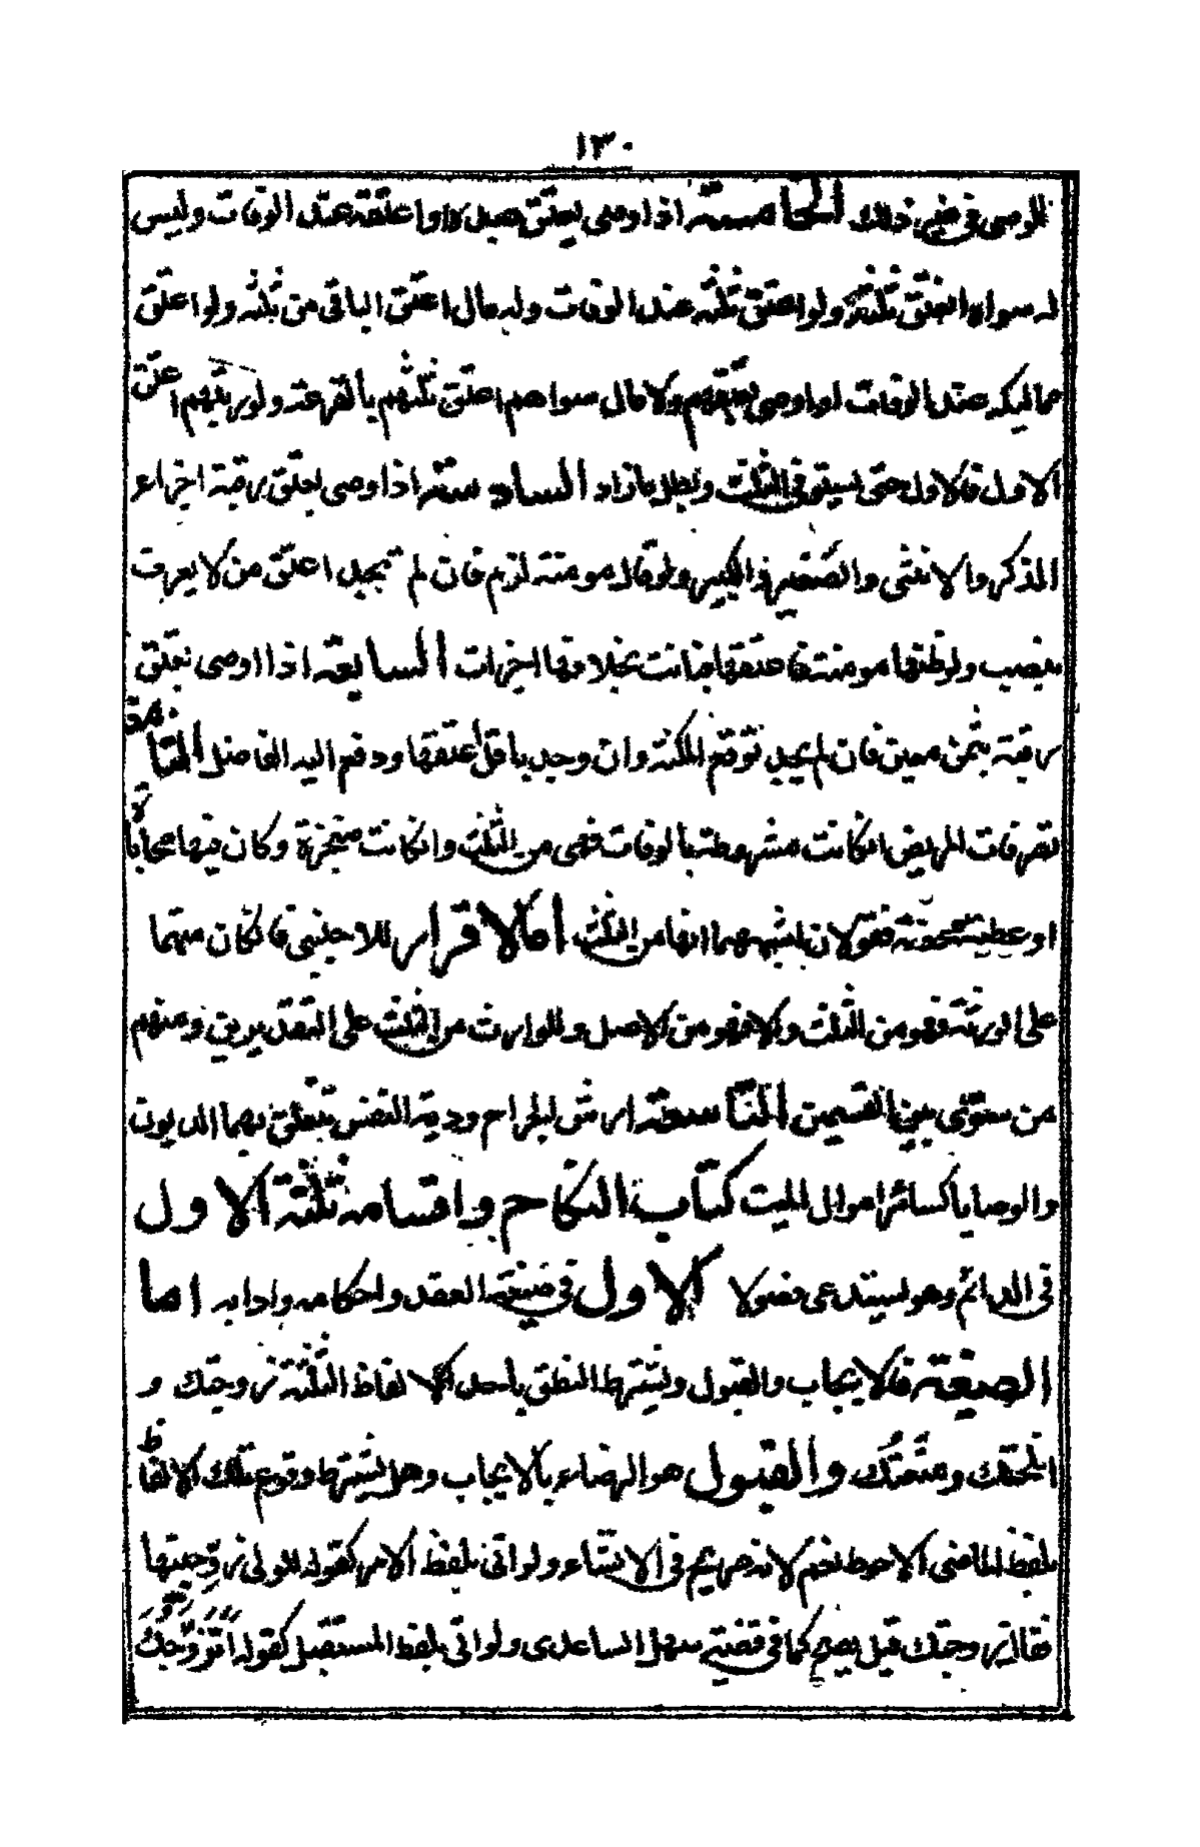 ١٣٠
الموصى في غير ذلك الخامسة اذا اوصى بعتق عبده او اعتقه عند الوفات وليس
له سواه انعتق ثلثه ولو اعتق ثلثه عند الوفات وله مال اعتق الباقى من ثلثه ولو اعتق
مماليكه عند الوفات او اوصى بعتقهم ولا مال سواهم اعتق ثلثهم بالقرعة ولو رتبهم اعتق
الاول فالاول حتى يستوفى الثلث وبطل ما زاد السادسة اذا اوصى بعتق رقبة اجزاء
الذكر والانثى والصغير والكبير ولو قال مومنة لزم فان لم يجد اعتق من لا يعرف
بنصب ولو ظنها مومنة فاعتقها فبانت بخلافها اجزات السابعة اذا اوصى بعتق
رقبة بثمن معين فان لم يجد توقع المكنة وان وجد باقل اعتقها ودفع اليه الفاضل الثامنة
تصرفات المريض ان كانت مشروطة بالوفات فهى من الثلث وان كانت منجزة وكان فيها محاباة
او عطية محضة فقولان اشبههما انها من الثلث اما الاقرار للاجنبى فان كان متهما
على الورثة فهو من الثلث والا فهو من الاصل وللوارث من الثلث على التقديرين ومنهم
من سوى بين القسمين التاسعة ارش الجراح ودية النفس تتعلق بهما الديون
والوصايا كسائر اموال الميت كتاب النكاح واقسامه ثلثة الاول
فى الدائم وهو يستدعى فصولا الاول فى صيغة العقد واحكامه وادابه اما
الصيغة فالايجاب والقبول ويشترط النطق باحد الالفاظ الثلثة زوجتك و
انكحتك ومتعتك والقبول هو الرضاء بالايجاب وهل يشترط وقوع تلك الالفاظ
بلفظ الماضى الاحوط نعم لانه صريح فى الانشاء ولو اتى بلفظ الامر كقوله للولى زوجنيها
فقال زوجتك قيل يصح كما فى قضية سهل الساعدى ولو اتى بلفظ المستقبل كقوله اتزوجك